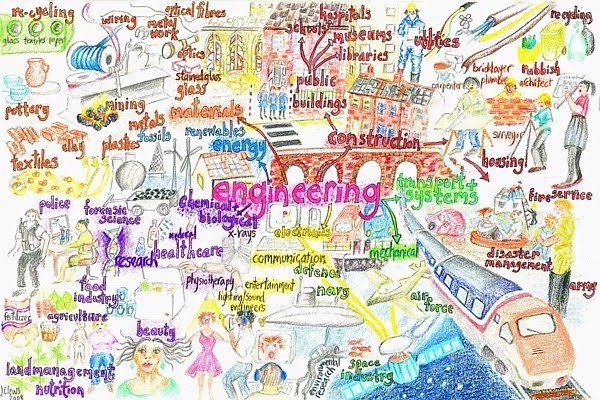 re-cycling
glass textiles paper
wiring
optical fibres
metal
work
optics
stained glass
glass
materials
mining
metals
fossils
plastics
pottery
clay
textiles
renewables
energy
schools
hospitals
museums
libraries
public
buildings
construction
utilities
carpenter
bricklayer
plumber
rubbish
architect
recycling
surveyor
housing
engineering
transport+
systems
fire service
disaster
management
army
police
forensic
science
chemical+
biological
x-rays
medical
healthcare
research
electronics
communication
mechanical
defence
navy
air
force
food
industry
physiotherapy
entertainment
lighting/sound
engineers
fertilizers
agriculture
beauty
land management
nutrition
environmental
research
space
industry
J Clews
2008